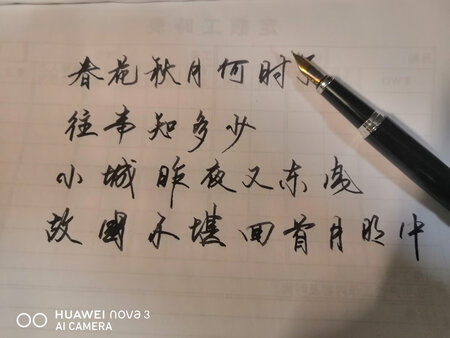 春花秋月何时了
往事知多少
小城昨夜又东风
故國不堪回首月明中
HUAWEI nova 3
AI CAMERA